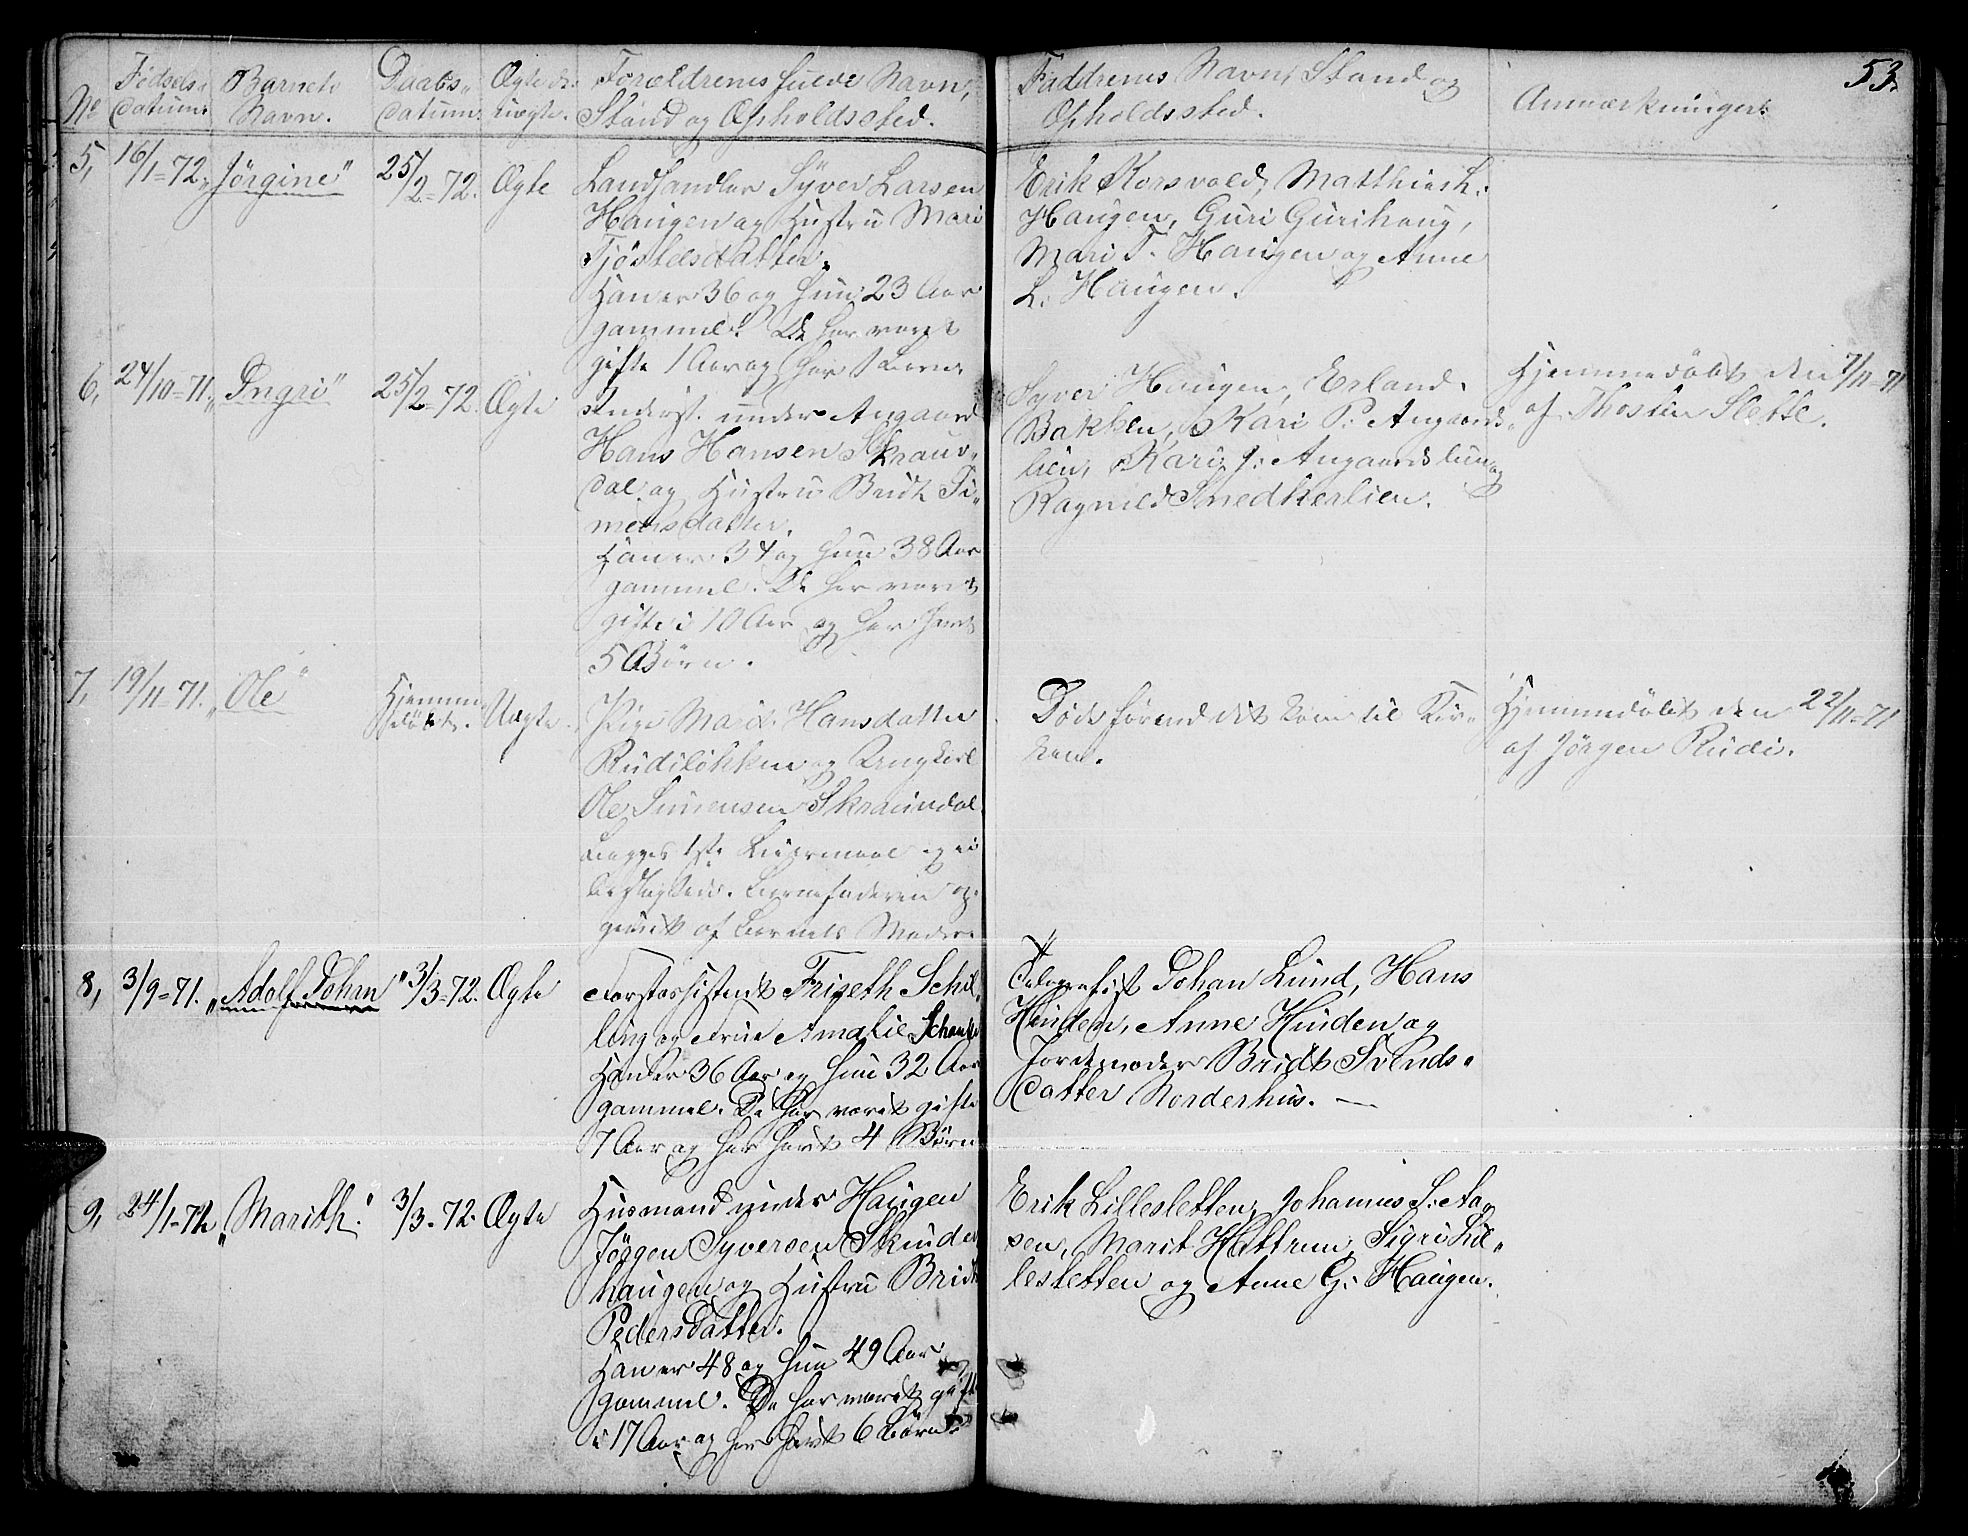 53.
No
Fødsels-
datum.
Barnets
Navn.
Daabs-
datum.
Ægte el.
uægte.
Forældrenes fulde Navn,
Stand og Opholdssted.
Faddrenes Navn, Stand og
Opholdssted.
Anmærkninger.
5, 16/1-72. „Jörgine” 25/2-72. Ægte
Landhandler Syver Larsen
Haugen og Hustru Mari
Tjöstelsdatter.
Han er 36 og hun 23 Aar
gammel. De har været
gifte 1 Aar og har 1 Barn.
Erik Korsvold, Matthias L.
Haugen, Guri Gurihaug,
Mari T. Haugen og Anne
L. Haugen.
6, 24/10-71. „Ingri” 25/2-72. Ægte
Inderst. under Angaard
Hans Hansen Skrauv-
dal og Hustru Bridt Si-
mensdatter.
Han er 34 og hun 38 Aar
gammel. De har været
gifte i 10 Aar og har havt
5 Börn.
Syver Haugen, Erland
Bakken, Kari P. Angaards-
lien, Kari J. Angaardslien og
Ragnild Snedkerlien.
Hjemmedöbt den 7/11-71
af Thosten Slette.
7, 19/11-71. „Ole” Hjemme-
döbt. Uægte.
Pige Marit Hansdatter
Rudilökken og Ungkarl
Ole Simensen Skrauvdal.
Begges 1ste Leiermaal og ei
beslægtede. Barnefaderen op-
givet af Barnets Moder.
Döde förend det kom til Kir-
ken.
Hjemmedöbt den 22/11-71
af Jörgen Rudi.
8, 3/9-71. „Adolf Johan” 3/3-72. Ægte
Forstassistent Frizeth Schil-
ling og Frue Amalie
Han er 36 Aar og hun 32 Aar
gammel. De har været gifte
7 Aar og har havt 4 Börn
Telegrafist Johan Lund, Hans
Hinden, Anne Hinden og
Jordemoder Bridt Svends-
datter Norderhus. —
9, 24/1-72. „Marith.” 3/3-72. Ægte
Husmand under Haugen
Jörgen Syversen Skinder
haugen og Hustru Bridt
Pedersdatter.
Han er 48 og hun 49 Aar
gammel. De har været gifte
i 17 Aar og har havt 6 Börn.
Erik Lillesletten, Johannes S. Aa-
sen, Marit Hattrem, Sigri Lil-
lesletten og Anne G. Haugen.